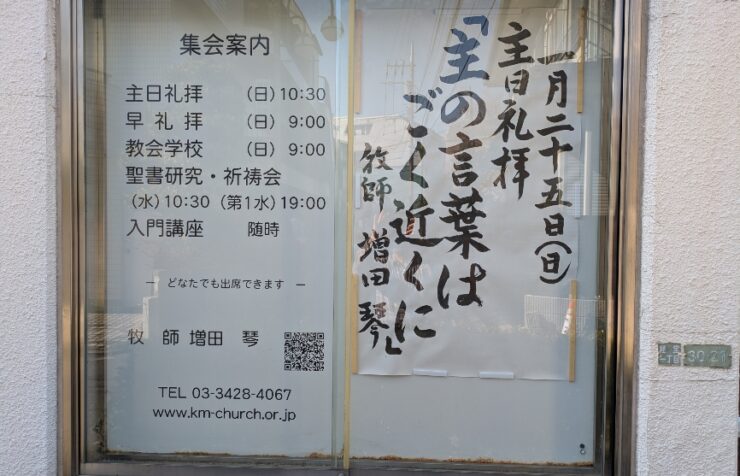 集会案内
主日礼拝 (日) 10:30
早礼拝 (日) 9:00
教会学校 (日) 9:00
聖書研究・祈祷会
(水) 10:30 (第1水) 19:00
入門講座 随時
― どなたでも出席できます ―
牧師 増田 琴
TEL 03-3428-4067
www.km-church.or.jp
一月二十五日(日)
主日礼拝
「主の言葉は
ごく近くに」
牧師 増田 琴
30-21